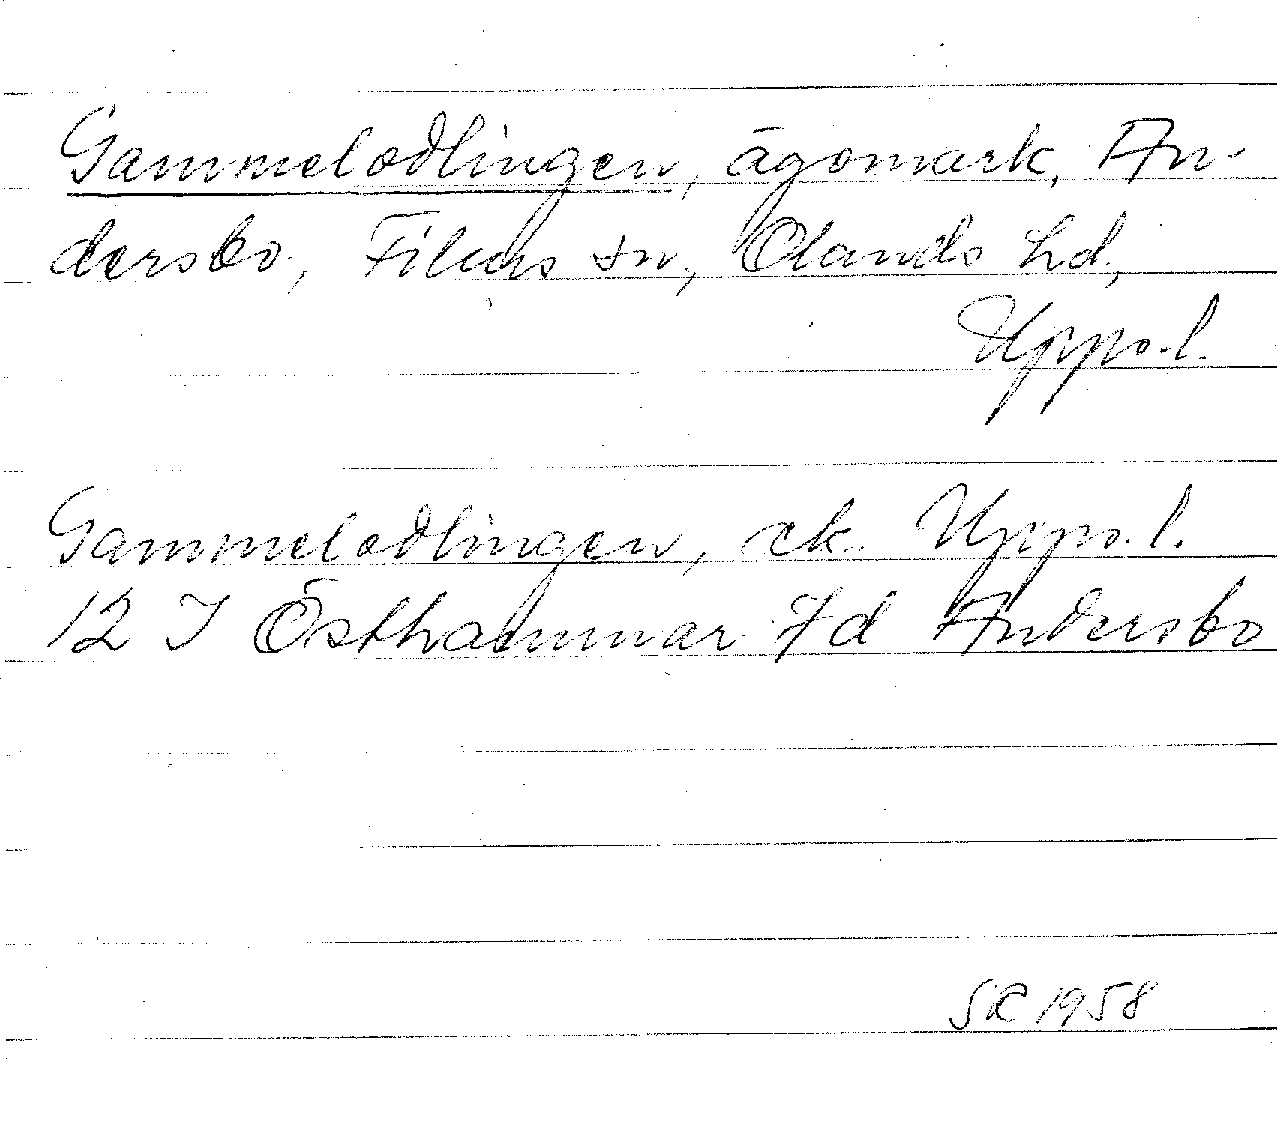 Gammelodlingen, ägomark, An-
dersbo, Films sn, Olands hd,
Upps.l.
Gammelodlingen, ek. Upps.l.
12 I Östhammar 7d Andersbo
SR 1958